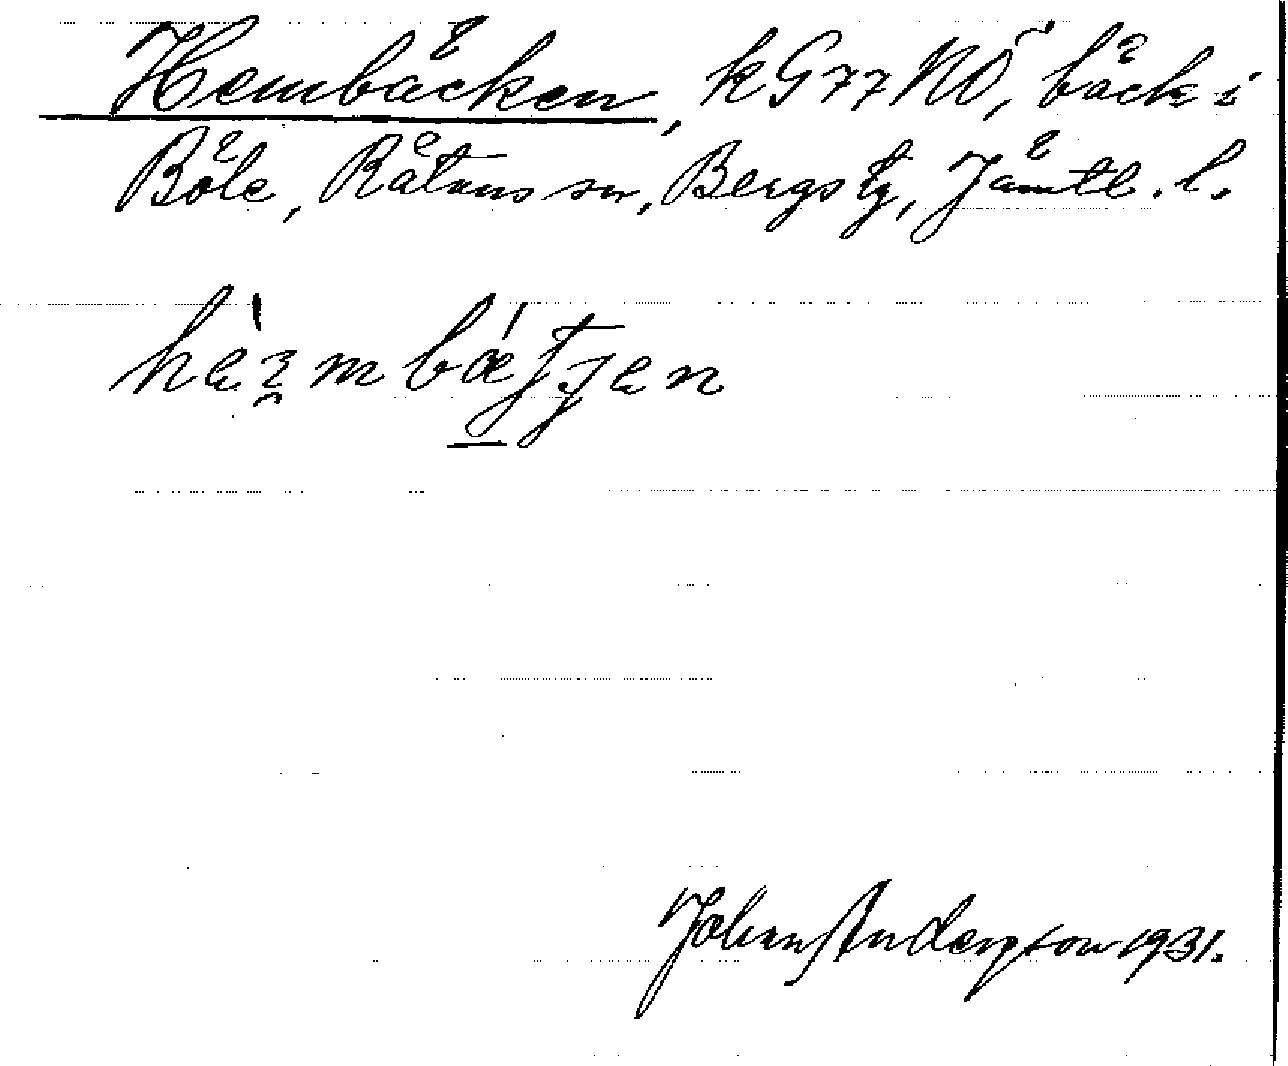 Hembäcken, k G 77 NÖ, bäck i
Böle, Rätans sn, Bergs tg, Jämtl. l.
Johan Anderson 1931.